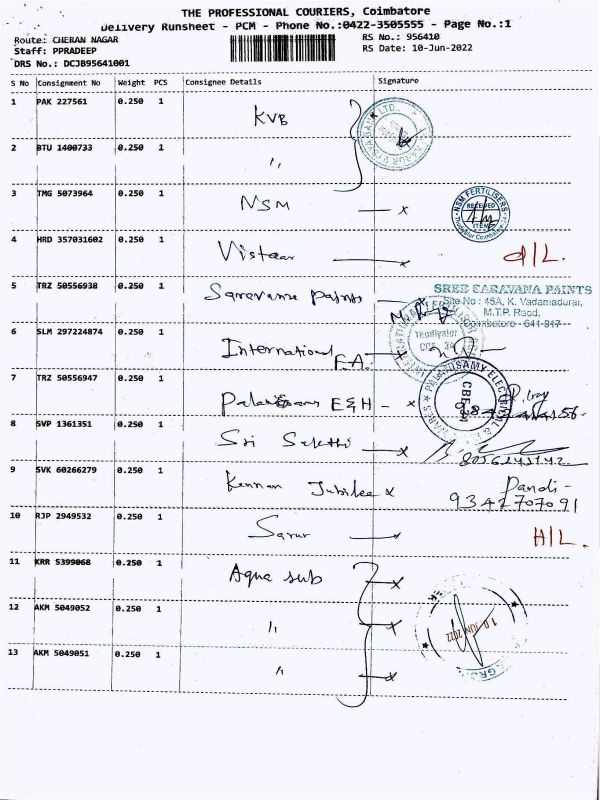 THE PROFESSIONAL COURIERS, Coimbatore
Delivery Runsheet - PCM - Phone No.:0422-3505555 - Page No.:1
Route: CHERAN NAGAR RS No.: 956410
Staff: PPRADEEP RS Date: 10-Jun-2022
DRS No.: DCJB95641001
S No Consignment No Weight PCS Consignee Details Signature
1 PAK 227561 0.250 1 KVB
2 BTU 1400733 0.250 1 "
3 TMG 5073964 0.250 1 NSM x
NSM FERTILISERS
RECEIVED
4 HRD 357031602 0.250 1 Vistaar x D/L.
5 TRZ 50556938 0.250 1 Saravana paints
SREE SARAVANA PAINTS
Site No : 45A, K. Vadamadurai,
M.T.P. Road,
Coimbatore - 641 017
6 SLM 297224874 0.250 1 International F.A. x
Thudiyalur
7 TRZ 50556947 0.250 1 E&H - x
PALANISAMY ELECTRICAL
8 SVP 1361351 0.250 1 Sri Sakthi x
9 SVK 60266279 0.250 1 Kannan Jubilee x Pandi -
10 RJP 2949532 0.250 1 Sarur x H/L.
11 KRR 5399068 0.250 1 Aqua sub x
12 AKM 5049052 0.250 1 " x
10 JUN 2022
13 AKM 5049051 0.250 1 " x